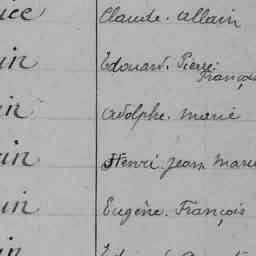 ice Claude. Allain
in Edouard. Pierre.
François
in Adolphe. Marie
in Henri Jean Marie
in Eugène. François
in